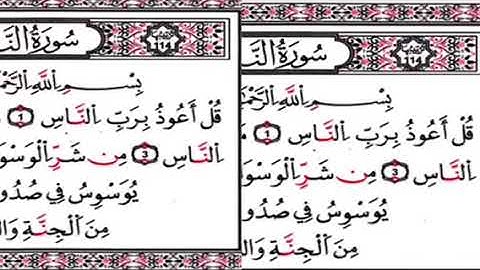 114 سُورَةُ النَّـ
بِسْمِ اللَّهِ الرَّحْمَـ
قُلْ أَعُوذُ بِرَبِّ النَّاسِ 1
النَّاسِ 3 مِن شَرِّ الْوَسْوَ
يُوَسْوِسُ فِي صُدُو
مِنَ الْجِنَّةِ وَال
114 سُورَةُ النَّـ
بِسْمِ اللَّهِ الرَّحْمَـ
قُلْ أَعُوذُ بِرَبِّ النَّاسِ 1
النَّاسِ 3 مِن شَرِّ الْوَسْوَ
يُوَسْوِسُ فِي صُدُو
مِنَ الْجِنَّةِ وَال